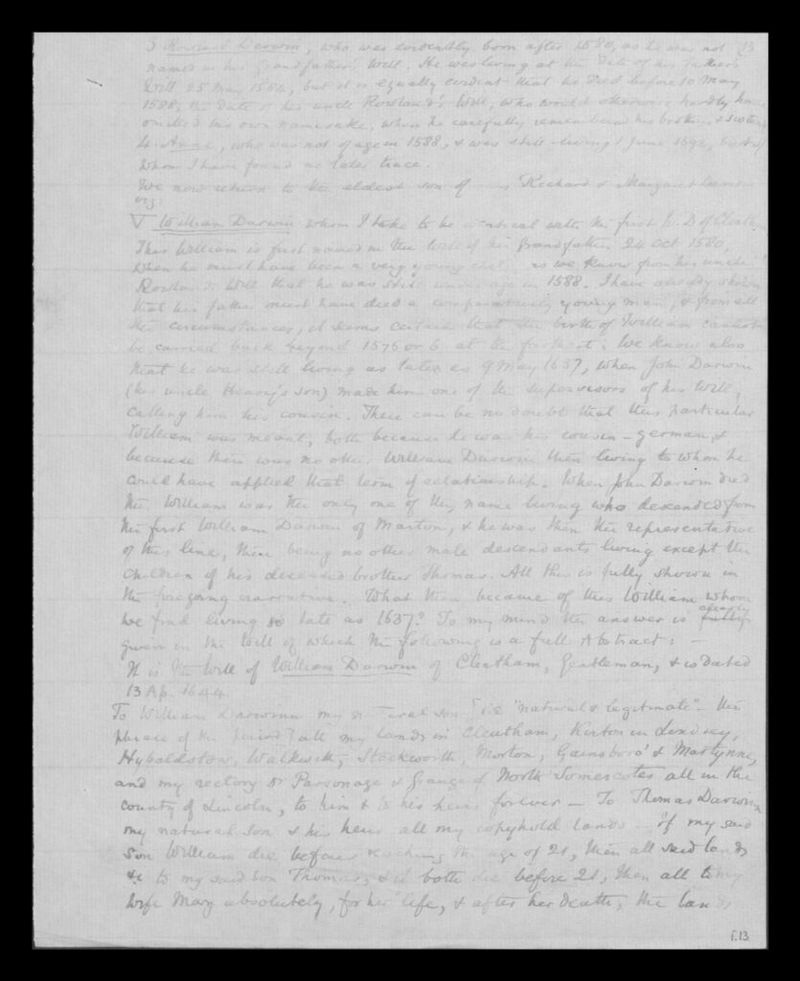 3 Rowland Darwin, who was evidently born after 1580, as he was not 13
named in his grandfather's Will. He was living at the date of his father's
Will 25 May 1584, but it is equally evident that he died before 10 May
1588, the date of his uncle Rowland's Will, who would otherwise hardly have
omitted his own namesake, when he carefully remembered his brothers & sisters
4. Anne, who was not of age in 1588, & was still living June 159
Whom I have found no later trace.
We now return to the eldest son of Richard & Margaret Darwin
viz:
V William Darwin whom I take to be identical with the first W. D of Cleatham
This William is first named in the Will of his grandfather 24 Oct 1580,
when he must have been a very young child, as we know from his uncle
Rowland's Will that he was still under age in 1588. I have already shown
that his father must have died a comparatively young man, & from all
the circumstances, it seems certain that the birth of William cannot
be carried back beyond 1575 or 6 at the furthest. We know also
that he was still living as late as 9 May 1637, when John Darwin
(his uncle Henry's son) made him one of the supervisors of his Will,
calling him his cousin. There can be no doubt that this particular
William was meant, both because he was his cousin-german, &
because there was no other William Darwin then living to whom he
could have applied that term of relationship. When John Darwin died
this William was the only one of the name living who descended from
the first William Darwin of Marton, & he was then the representative
of this line, there being no other male descendants living except the
children of his deceased brother Thomas. All this is fully shown in
the foregoing narrative. What then became of this William whom
we find living so late as 1637? To my mind the answer is fully clearly
given in the Will of which the following is a full Abstract: –
It is the Will of William Darwin of Cleatham, Gentleman, & is dated
13 Ap. 1644
To William Darwinn my natural son [i.e "natural & legitimate" – the
phrase of the period] all my lands in Cleatham, Kirton in Lindsey,
Hybaldstow, Walkwith, Stockworth, Morton, Gainsboro' & Martynne,
and my rectory or Parsonage & Grange of North Somercotes all in the
county of Lincoln, to him & to his heirs forever – To Thomas Darwinn
my natural son & his heirs all my copyhold lands – if my said
Son William die before reaching the age of 21, then all said lands
&c to my said son Thomas, & if both die before 21, then all to my
wife Mary absolutely, for her life, & after her death, the lands
f.13